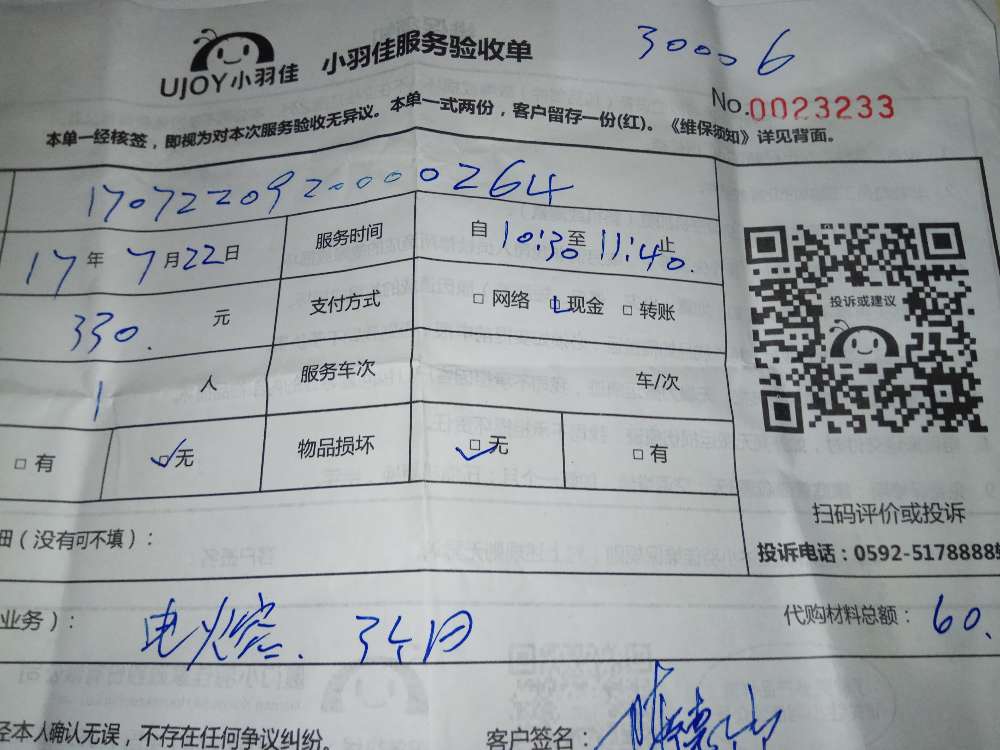 UJOY小羽佳 小羽佳服务验收单 30006
No.0023233
本单一经核签，即视为对本次服务验收无异议。本单一式两份，客户留存一份(红)。《维保须知》详见背面。
17072209200000264
17年7月22日 服务时间 自10:30至11:40止
330. 元 支付方式 □ 网络 □ 现金 □ 转账
1 人 服务车次 车/次
□ 有 □ 无 物品损坏 □ 无 □ 有
投诉或建议
扫码评价或投诉
细（没有可不填）：
投诉电话：0592-5178888转
业务）： 电火 3个月 代购材料总额： 60.
经本人确认无误，不存在任何争议纠纷。 客户签名：